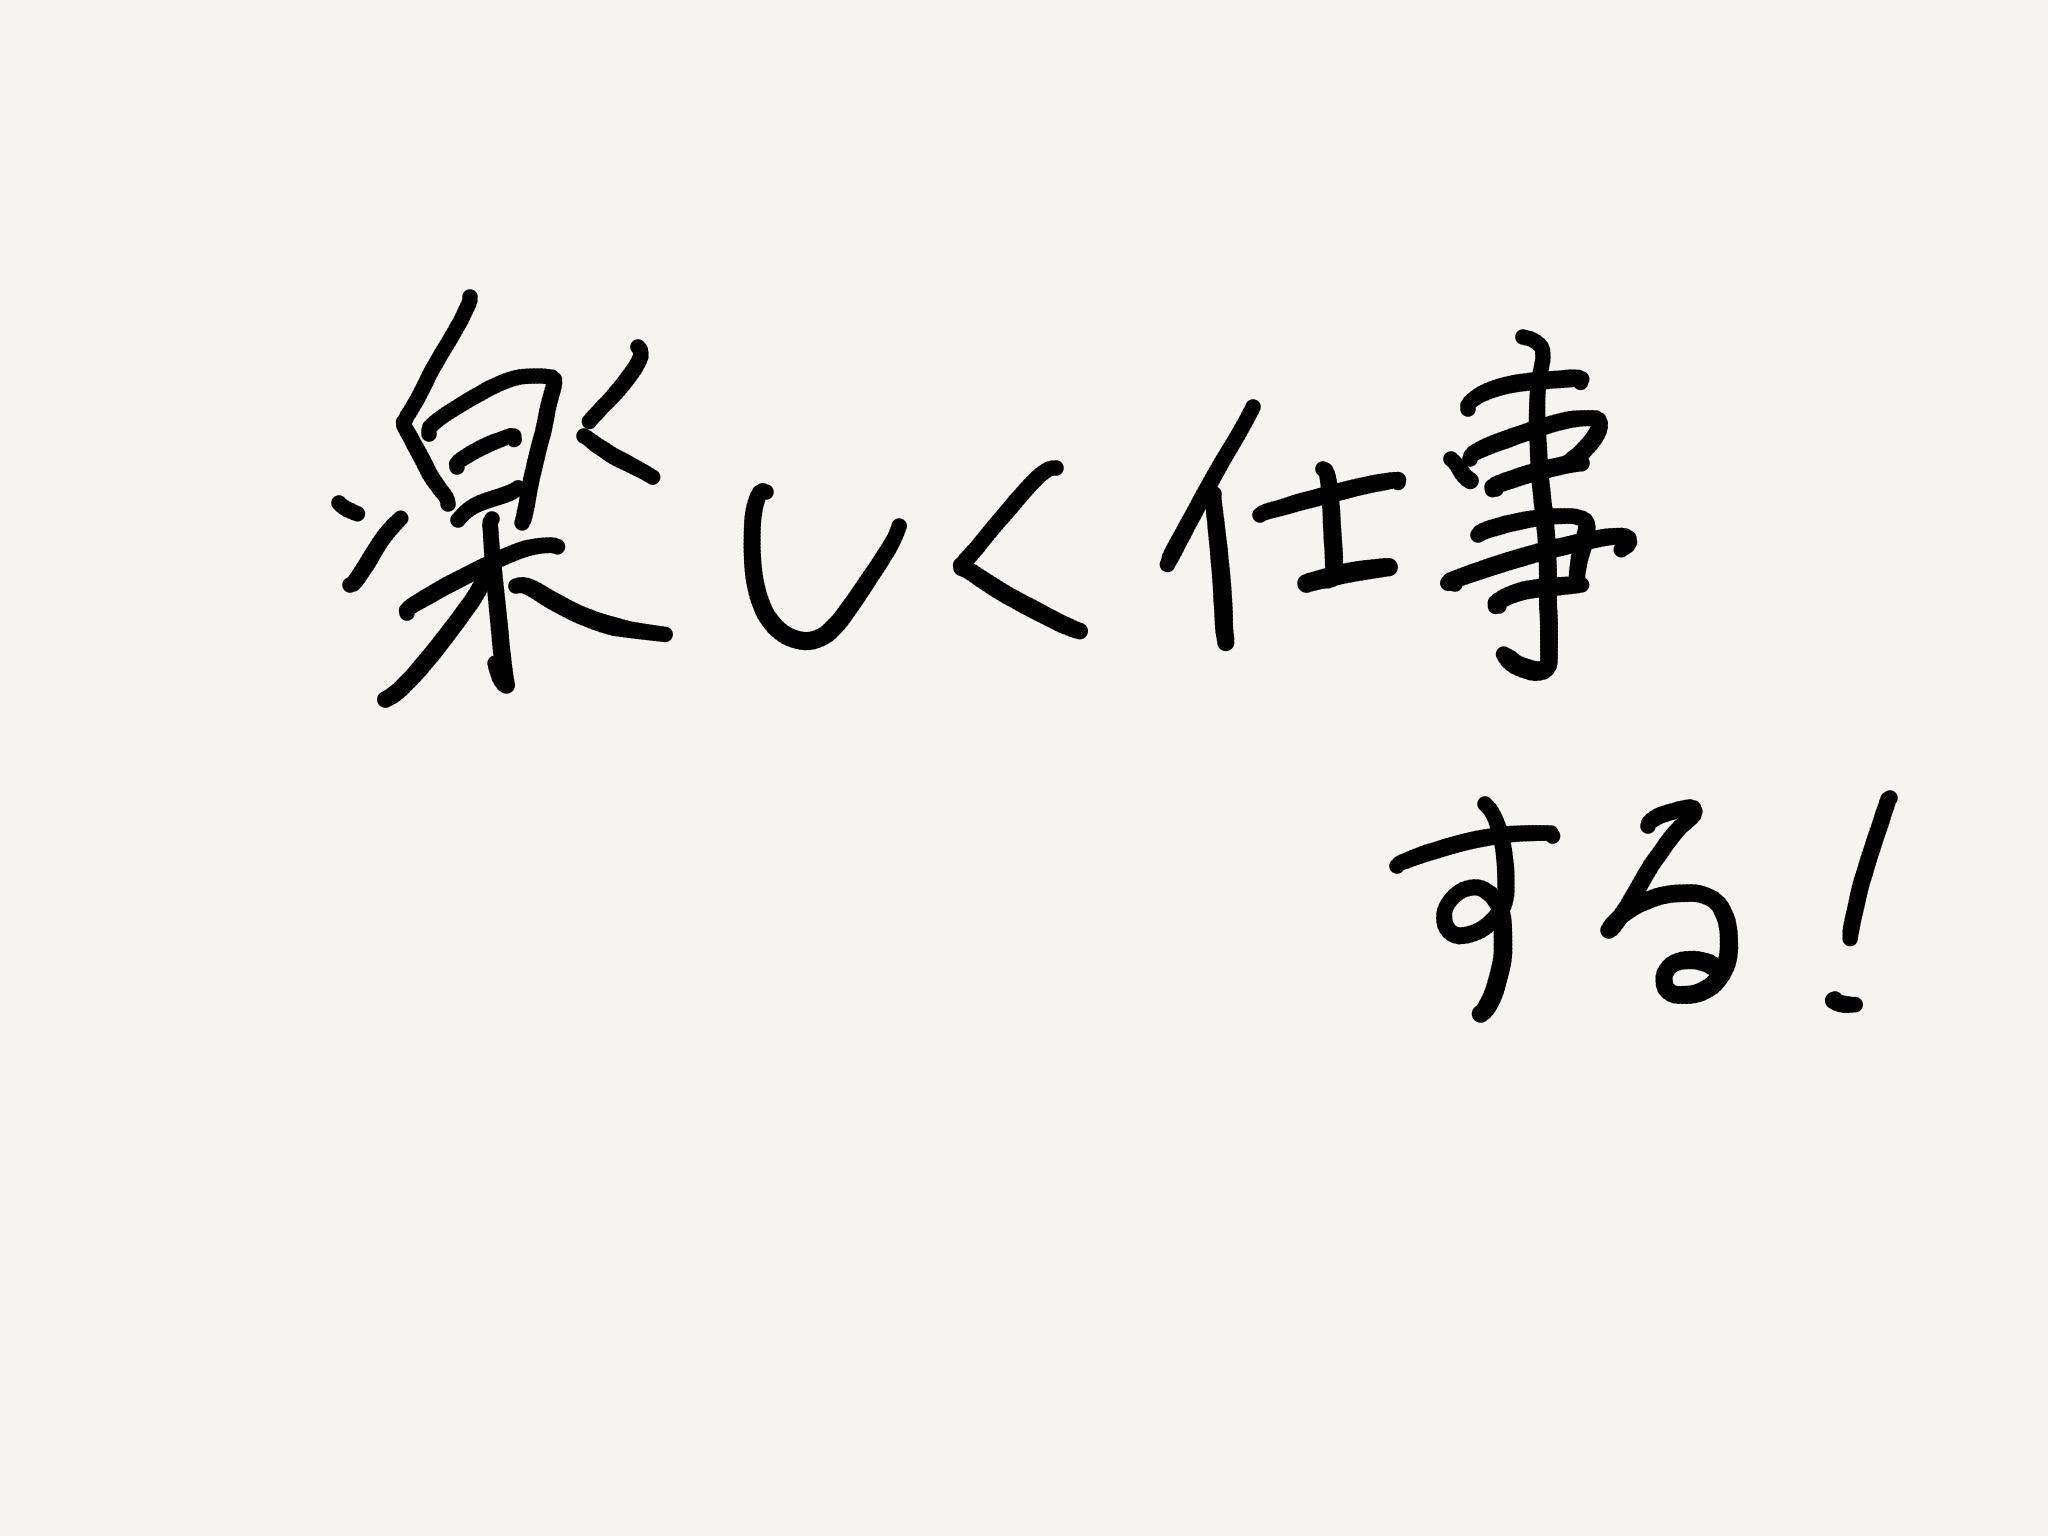 楽しく仕事
する!